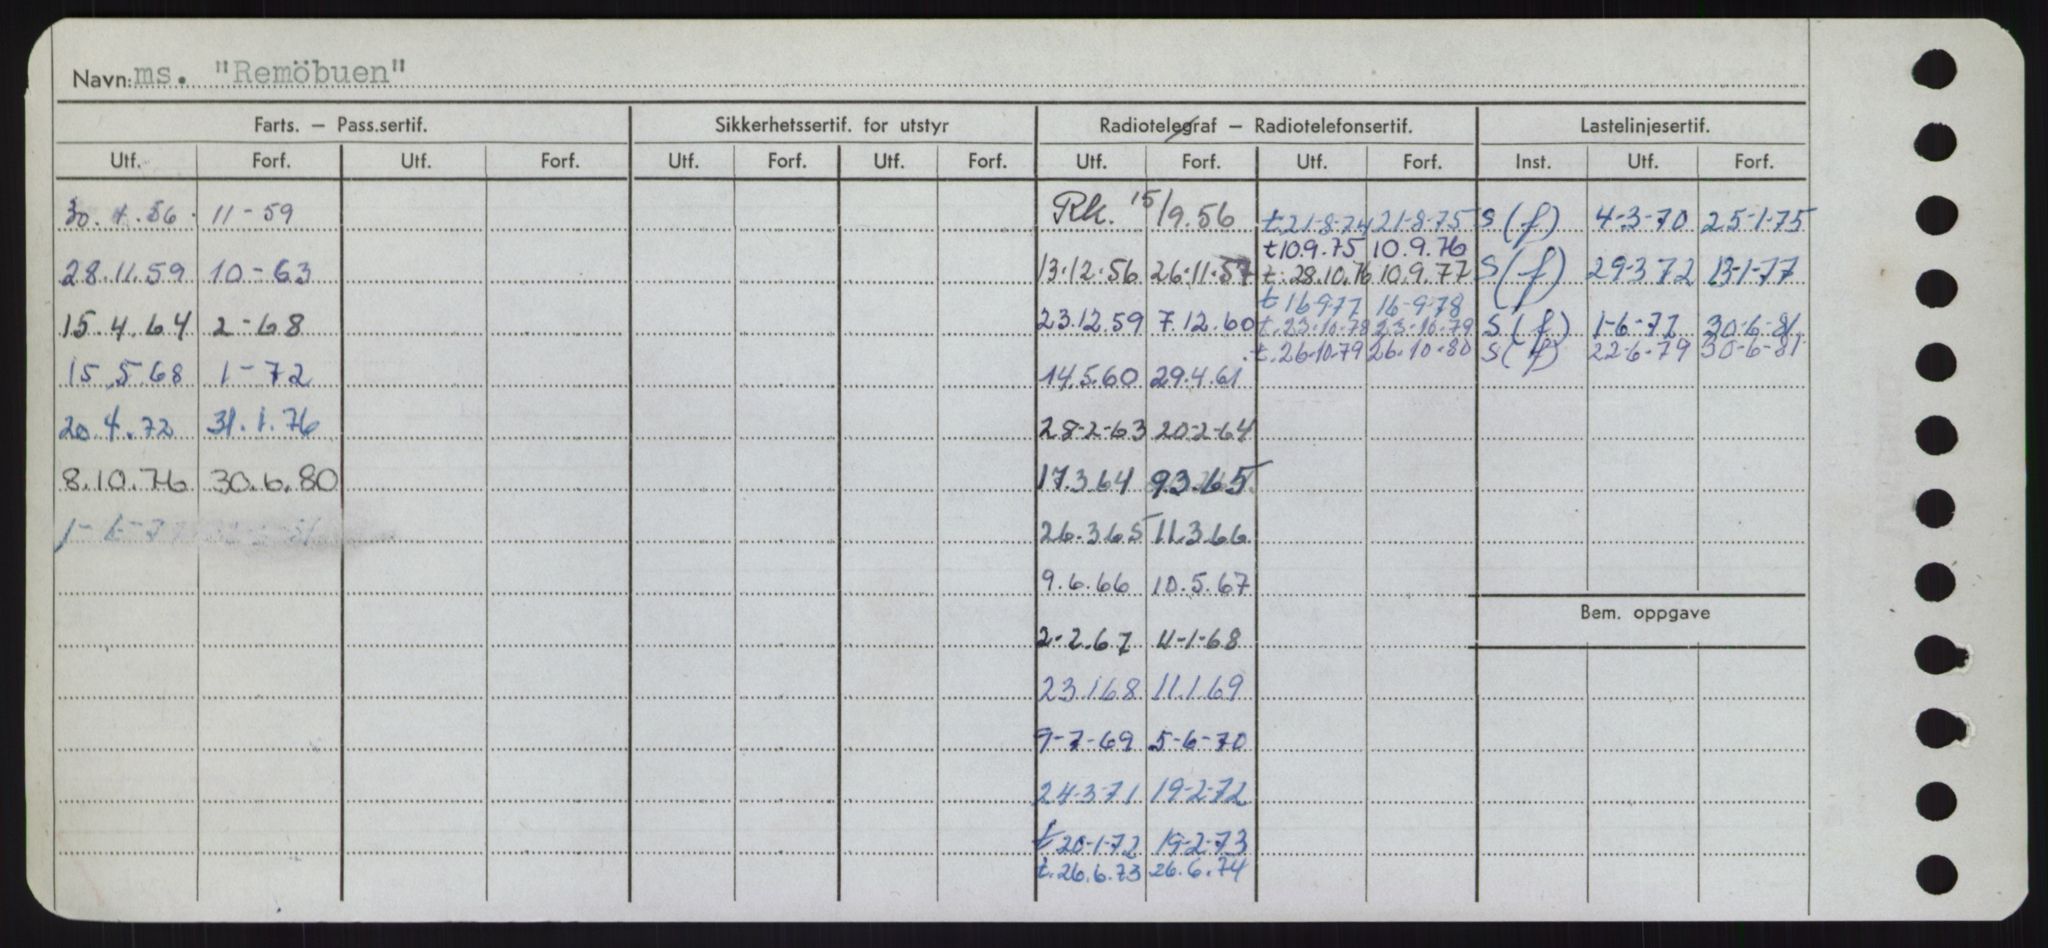 Navn: ms. "Remöbuen"
Farts. – Pass.sertif. Sikkerhetssertif. for utstyr Radiotelegraf – Radiotelefonsertif. Lastelinjesertif.
Utf. Forf. Utf. Forf. Utf. Forf. Utf. Forf. Utf. Forf. Utf. Forf. Inst. Utf. Forf.
30.4.56. 11-59 Rk. 15/9.56 t.21-8-74 21-8-75 S(f) 4-3-70 25-1-75
t10.9.75 10.9.76
28.11.59 10-63 13.12.56 26.11.57 t.28.10.76 10.9.77 S(f) 29-3 72 13-1-77
t 16977 16-9-78
15.4.64 2-68 23.12.59 7.12.60 t.23.10.78 23-10-79 S(f) 1-6-77 30-6-81
t.26.10.79 26.10.80 S(f) 22-6.79 30-6-81
15.5.68 1-72 14.5.60 29.4.61
20.4.72 31.1.76 28-2-63 20-2-64
8.10.76 30.6.80 17.3.64 9.3.65
1-6-77 26.3.65 11.3.66
9.6.66 10.5.67
Bem. oppgave
2-2.67 4-1-68
23.1.68 11.1.69
9-7-69 5-6-70
24-3-71 19-2-72
t 20-1-72 19-2-73
t.26.6.73 26.6.74